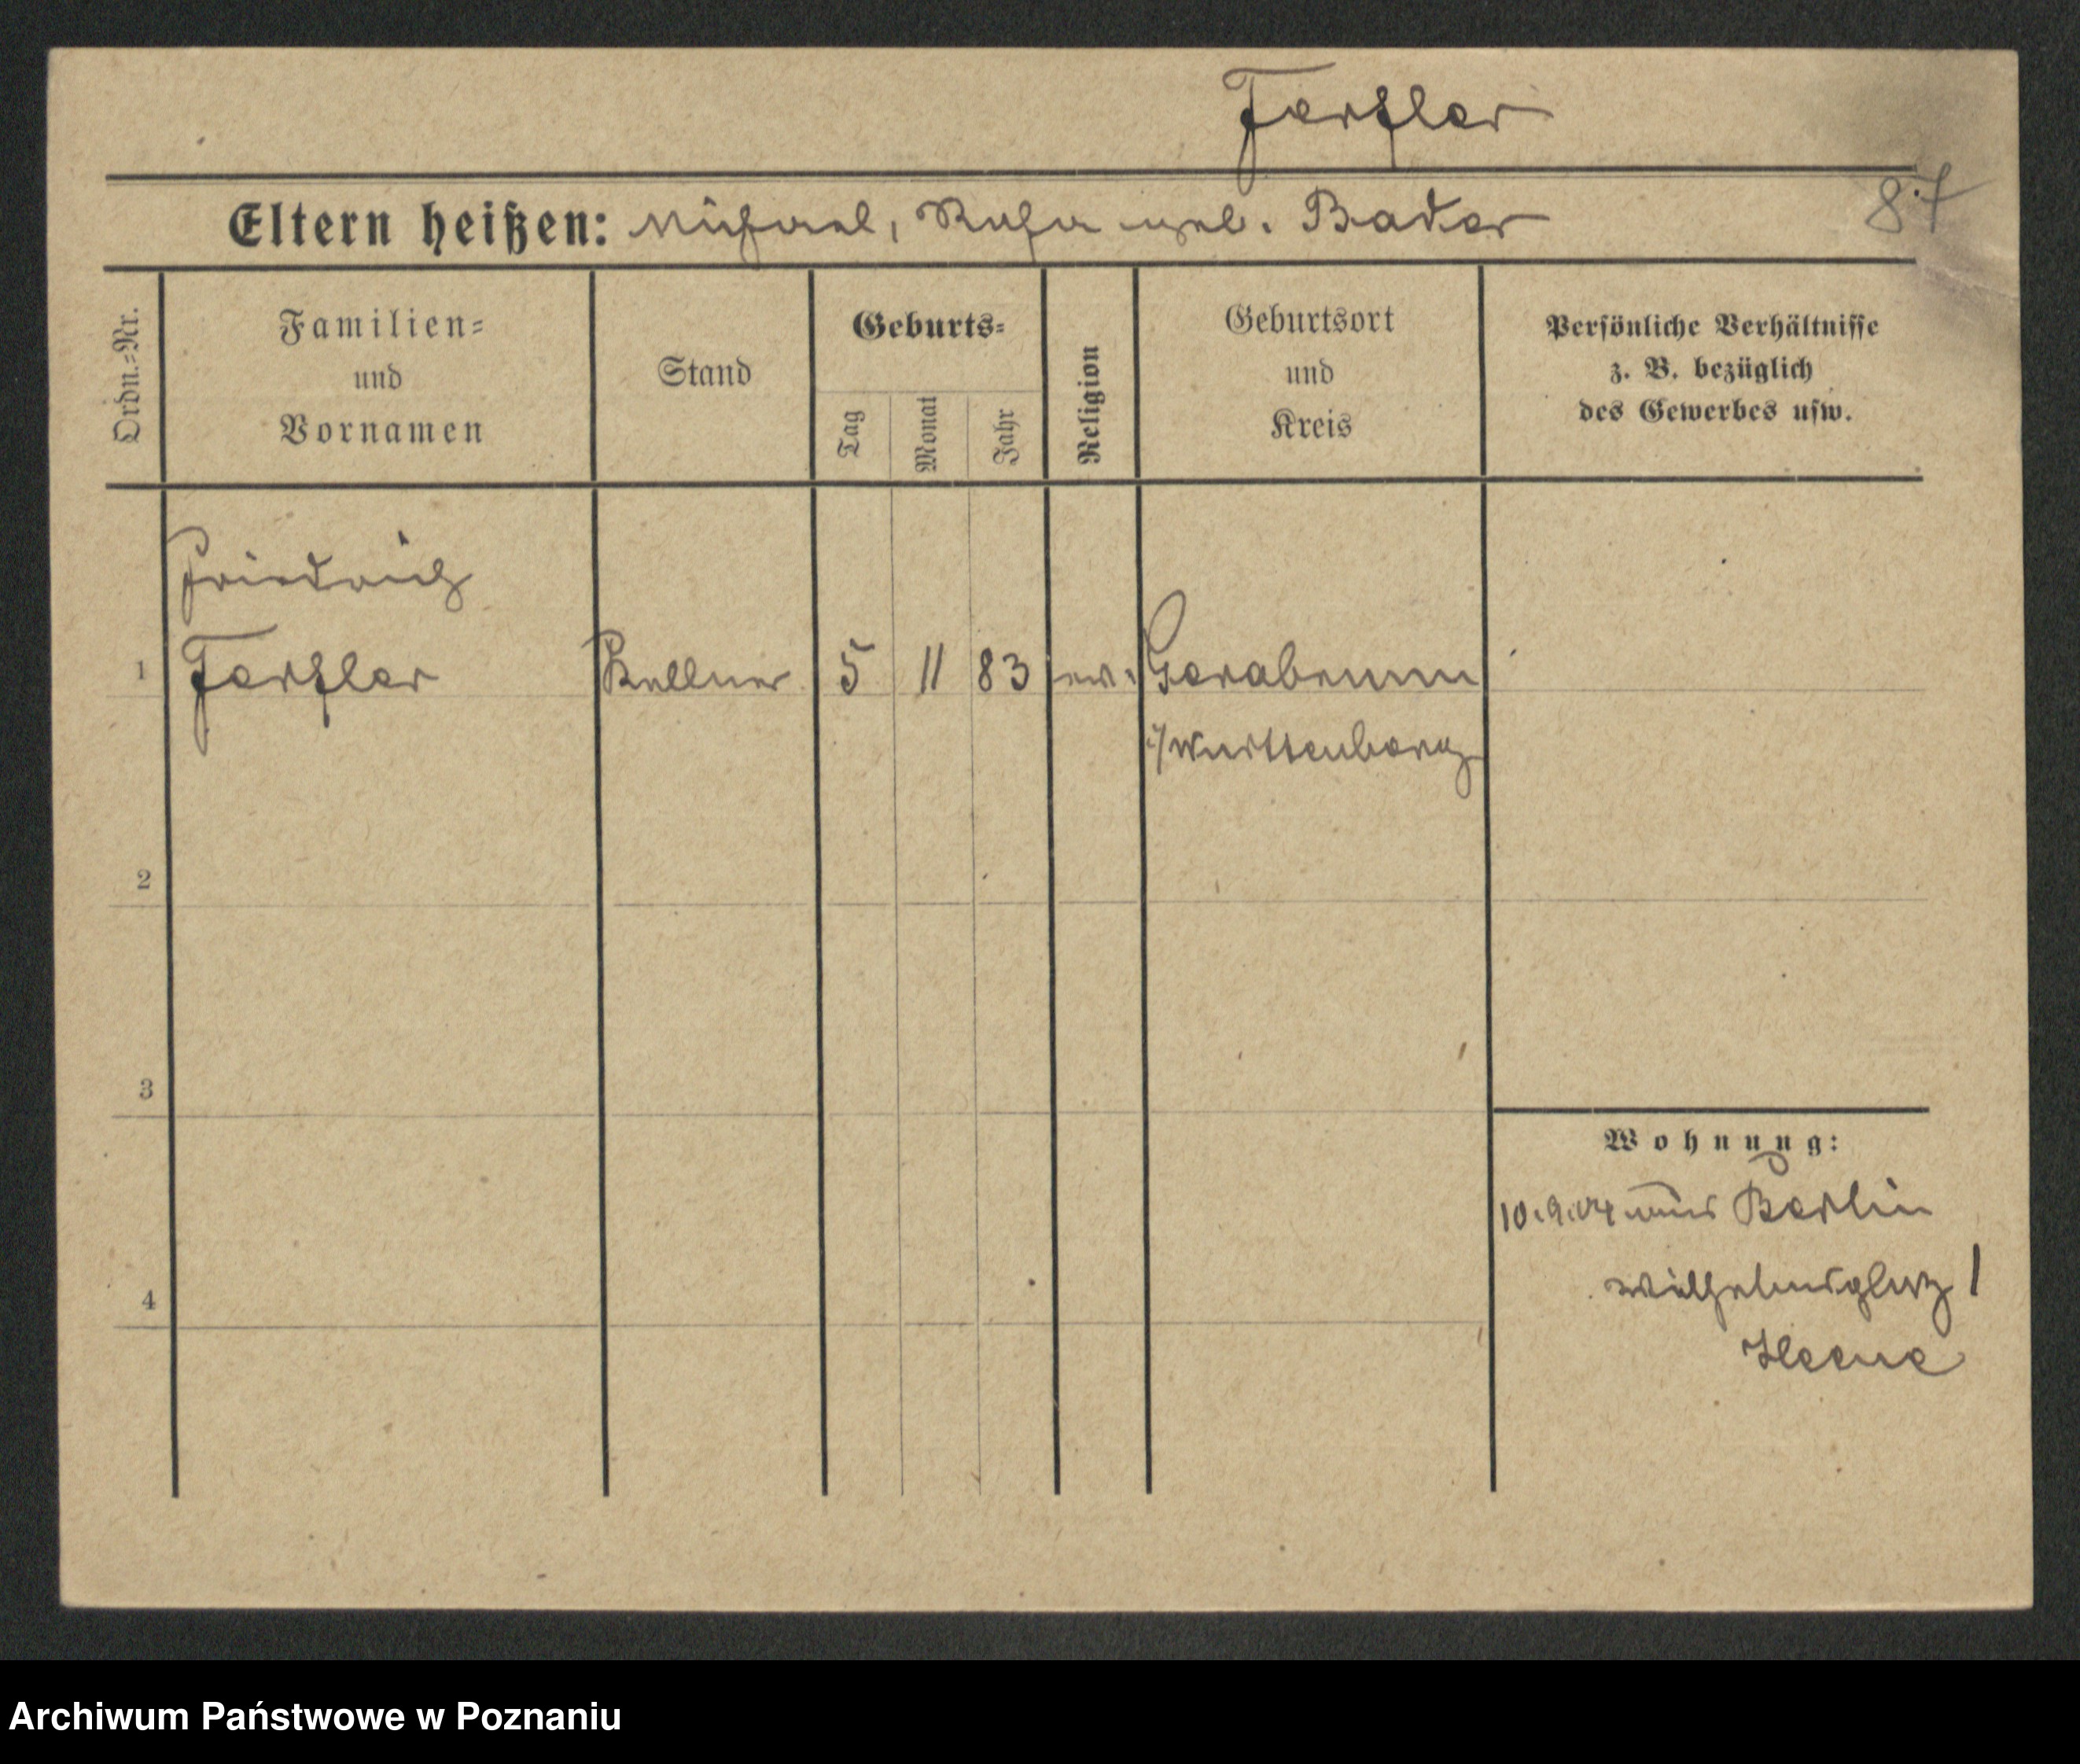 Ferkler
Eltern heißen: Michael, Rosa geb. Bader
87
Ordn.-Nr.
Familien-
und
Vornamen
Stand
Geburts-
Tag
Monat
Jahr
Religion
Geburtsort
und
Kreis
Persönliche Verhältnisse
z. B. bezüglich
des Gewerbes usw.
Friedrich
1 Ferkler Kellner 5 11 83 ev. Gerabronn
i/Württenberg
2
3
4
Wohnung:
10.9.04 aus Berlin
Wilhelmsplatz 1
Archiwum Państwowe w Poznaniu